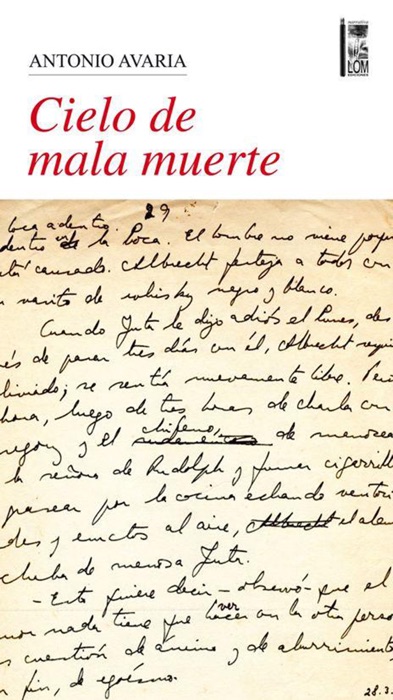 ANTONIO AVARIA
LOM
Cielo de
mala muerte
29
boca adentro.
dentro de la boca. El hombre no viene porque
está cansado. Albrecht festeja a todos con
un vasito de whisky negro y blanco.
Cuando Juta le dijo adiós el lunes, des
és de pasar tres días con él, Albrecht
liviado; se sentía nuevamente libre. Pero
hora, luego de tres horas de charla con
y el chileno, de
la señora de Rudolph y fumar cigarrill
pasear por la cocina echando ventosi
des y eructos al aire, Albrecht el alem
chaba de menos a Juta.
- Esto quiere decir - observó - que el
mor nada tiene que ver con la otra perso
es cuestión de ánimo y de aburrimiento
n fin, de egoísmo.
28.3